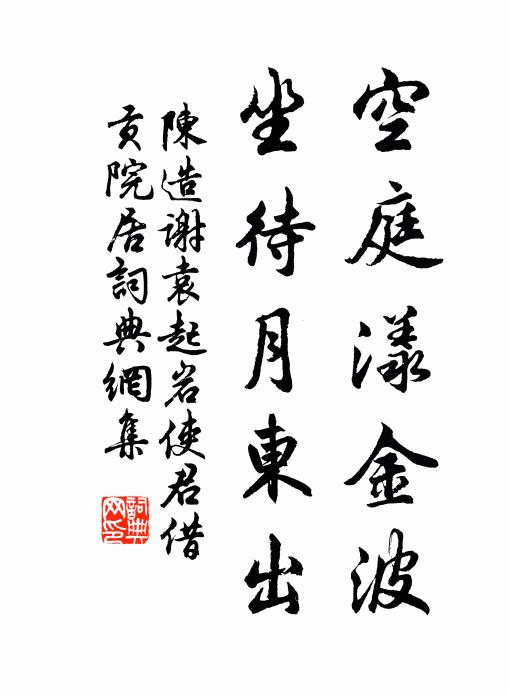 空庭漾金波
坐待月東出
陳造謝袁起岩使君借
貢院居詞典網集
詞典
网印